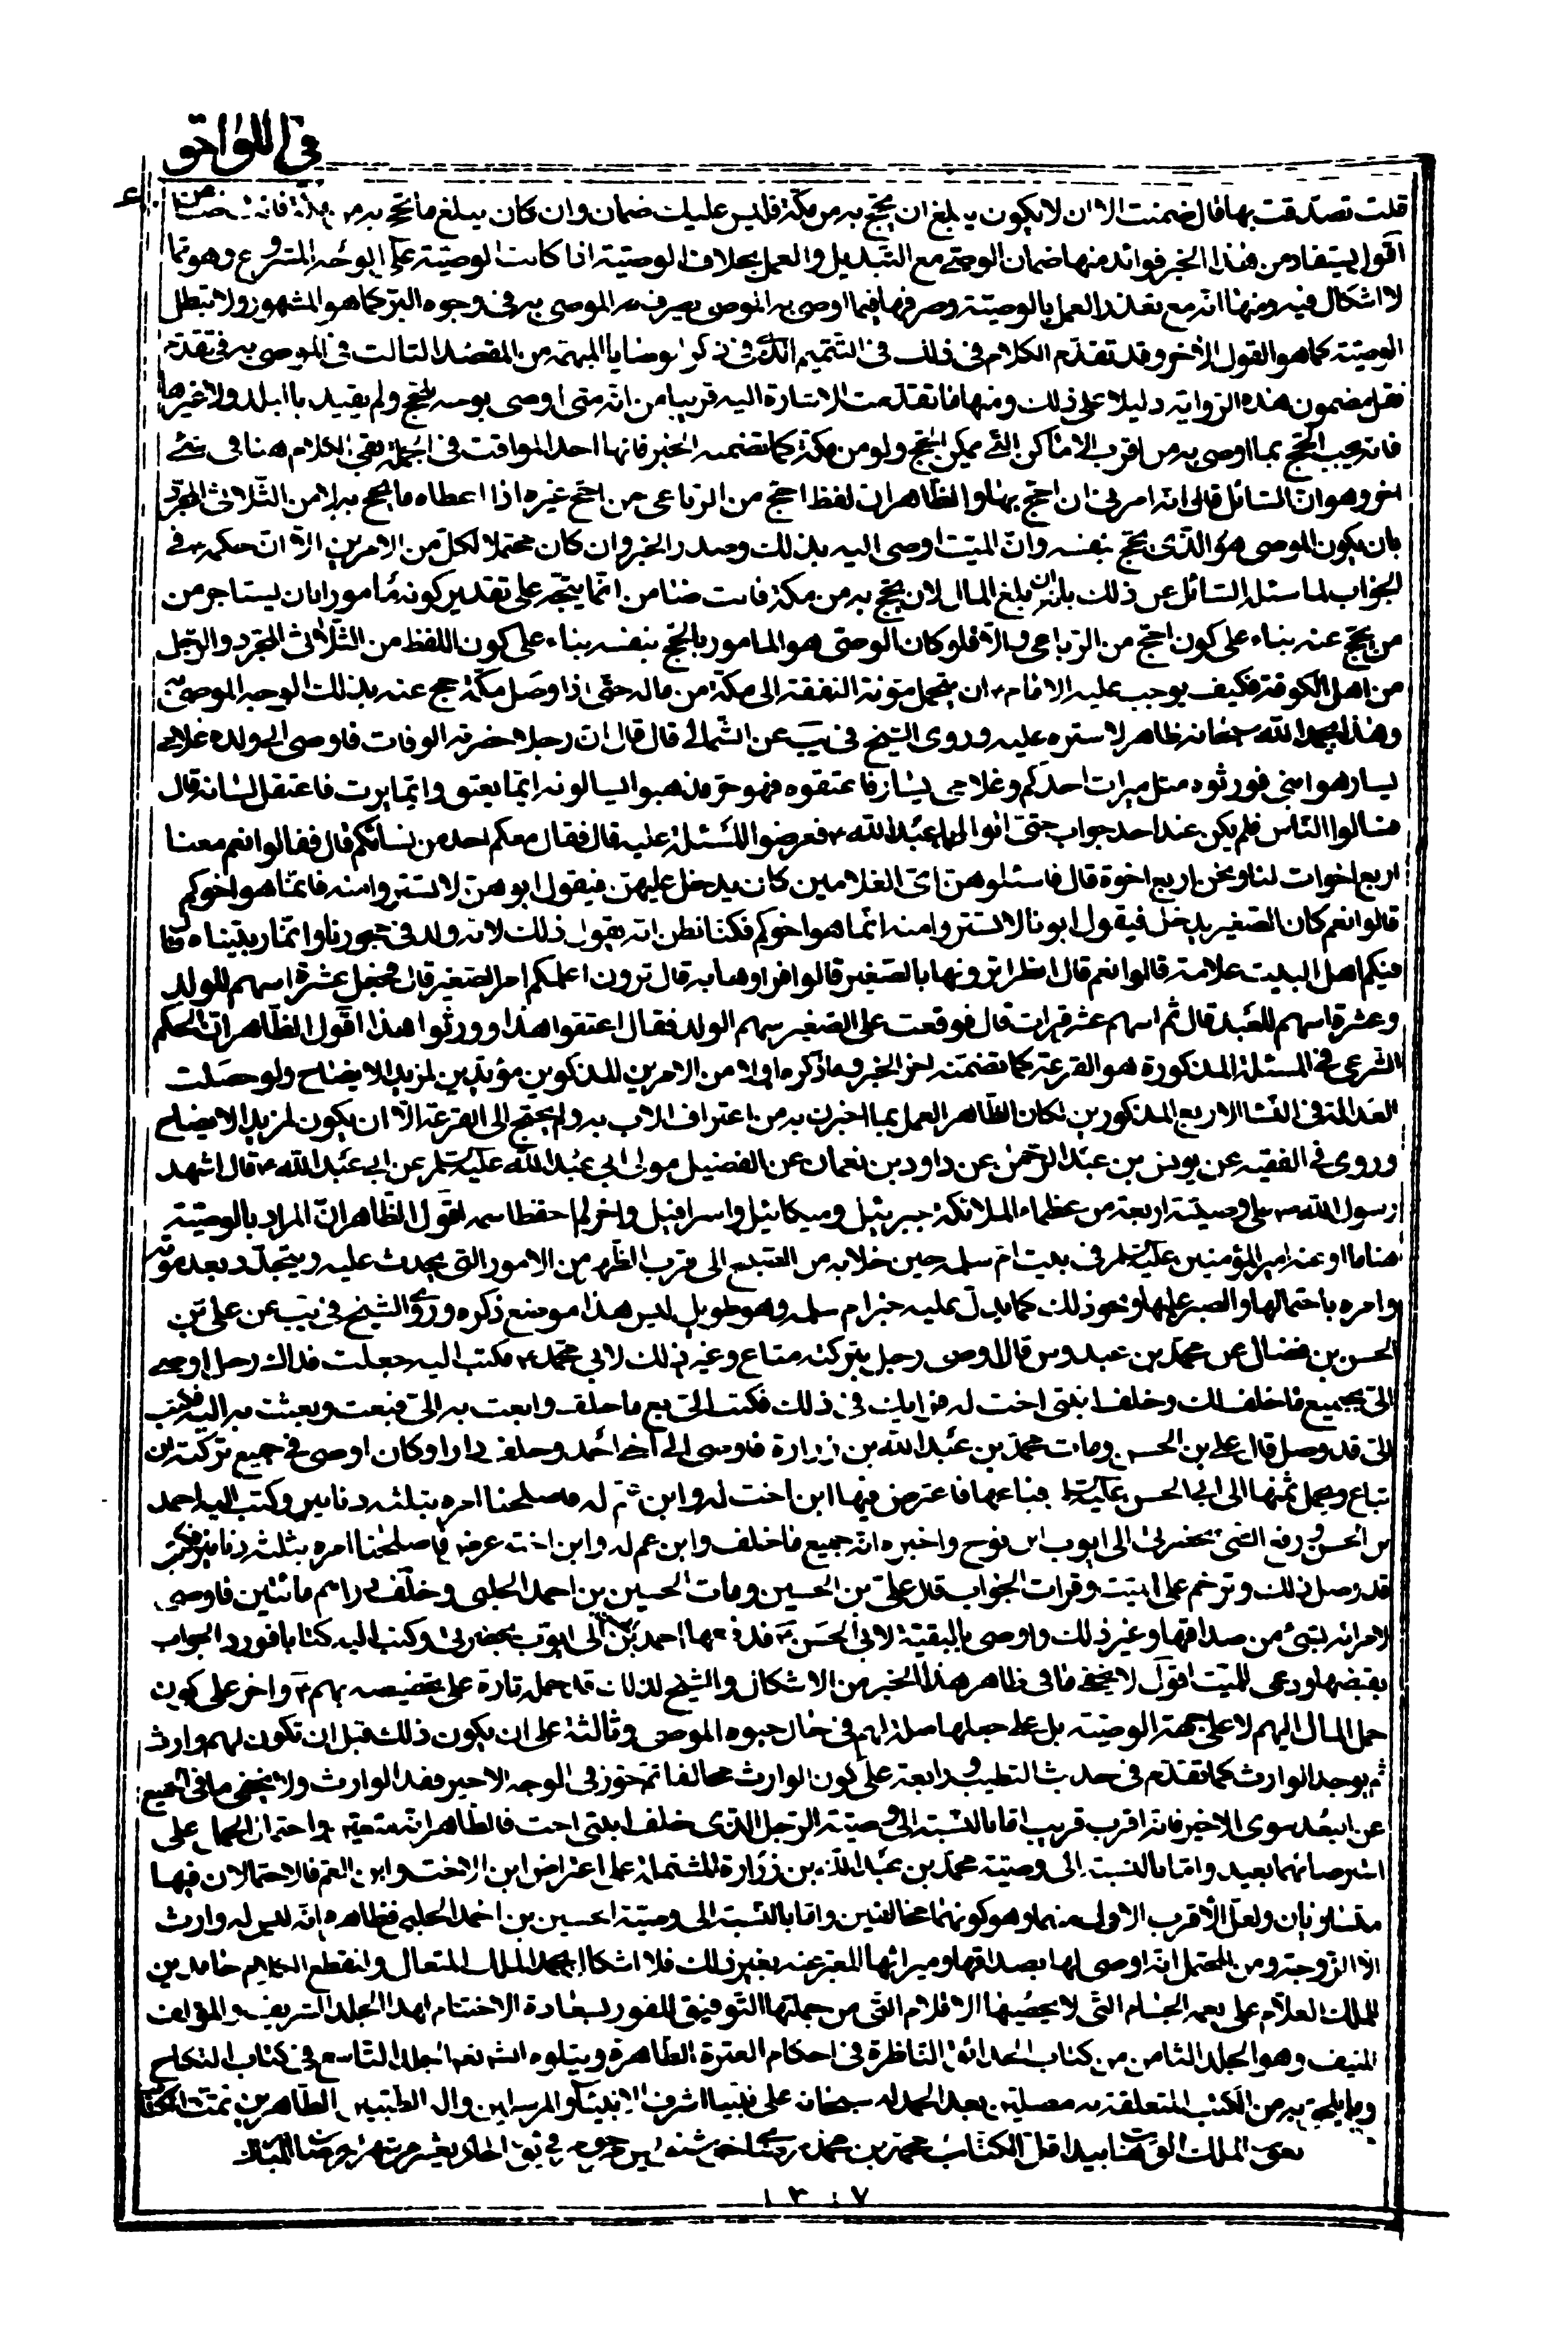 فى اللواحق
قلت تصدّقت بها قال ضمنت الا ان لا يكون يبلغ ان يحج به من مكّة فليس عليك ضمان وان كان يبلغ ما يحج به من مكة فانت ضامن
اقول يستفاد من هذا الخبر فوائد منها ضمان الوصى مع التبديل والعمل بخلاف الوصيّة اذا كانت الوصيّة على الوجه المشروع وهو مما
لا اشكال فيه ومنها انّه مع تعذر العمل بالوصيّة وصرفها فيما اوصى به الموصى يصرف الموصى به فى وجوه البرّ كما هو المشهور ولا تبطل
الوصيّة كما هو القول الاخر وقد تقدّم الكلام فى ذلك فى التّتميم الذى فى ذكر الوصايا المبهمة من المقصد الثالث فى الموصى به فى تقدّم
نقل مضمون هذه الرّواية دليلا على ذلك ومنها ما تقدّمت الاشارة اليه قريبا من انّه متى اوصى بوصيه بالحج ولم يقيد بالبلد ولا غيرها
فانه يجب الحجّ بما اوصى به من اقرب الاماكن التى يمكن الحجّ ولو من مكّة كما تضمنه الخبر فانها احد المواقت فى الجملة بقى الكلام هنا فى شئ
اخر وهو انّ السّائل قال انّه امرنى ان احجّ بها والظّاهر ان لفظ احجّ من الرّباعى من احجّ غيره اذا اعطاه ما يحج به لا من الثّلاثى المجرّد
بان يكون الموصى هو الّذى يحجّ بنفسه وانّ الميّت اوصى اليه بذلك وصدر الخبر وان كان محتملا لكلّ من الامرين الاّ انّ حكمه ع فى
الجواب لما سئله السّائل عن ذلك بانه ان بلغ المال لان يحجّ به من مكة فانت ضامن انّما يتجه على تقدير كونه مأمورا بان يستاجر من
من يحجّ عنه بناء على كون احجّ من الرّباعى والاّ فلو كان الوصىّ هو المامور بالحجّ بنفسه بناء على كون اللفظ من الثّلاثى المجرّد والرّجل
من اهل الكوفة فكيف يوجب عليه الامام ع ان يتحمل مؤنة النفقة الى مكّة من ماله حتّى اذا وصل مكّة حج عنه بذلك الوجه الموصى به
وهذا بحمد الله سبحانه ظاهر لا سترة عليه وروى الشيخ فى يب عن الثّمالى قال قال انّ رجلا حضرته الوفات فاوصى الى ولده غلامى
يسار هو ابنى فورثوه مثل ميراث احدكم وغلامى يسار فاعتقوه فهو حرّ فذهبوا يسالونه ايّما يعتق وايّما يرث فاعتقل لسانه قال
فسالوا النّاس فلم يكن عند احد جواب حتّى اتوا ابا عبد الله ع فعرضوا المسئلة عليه قال فقال معكم احد من نسائكم قال فقالوا نعم معنا
اربع اخوات لنا ونحن اربع اخوة قال فاسئلوهنّ اى الغلامين كان يدخل عليهنّ فيقول ابوهنّ لا تستتروا منه فانّما هو اخوكم
قالوا نعم كان الصّغير يدخل فيقول ابونا لا تستتروا منه انّما هو اخوكم فكنا نظن انّه يقول ذلك لانه ولد فى حجورنا وانّما ربّيناه قال
فيكم اهل البيت علامة قالوا نعم قال انظروا ترونها بالصّغير قالوا فراوها به قال ترون اعلمكم امر الصّغير قال فجعل عشرة اسهم للولد
وعشرة اسهم للعبد قال ثم اسهم عشر مرات قال فوقعت على الصّغير سهم الولد فقال اعتقوا هذا وورثوا هذا اقول الظّاهر انّ الحكم
الشّرعى فى المسئلة المذكورة هو القرعة كما تضمّنه اخر الخبر وما ذكره اولا من الامرين المذكورين مؤيّدين لمزيد الايضاح ولو حصلت
العدالة فى النّساء الاربع المذكورين لكان الظّاهر العمل بما اخبرن به من اعتراف الاب به ولم يحتج الى القرعة الاّ ان يكون لمزيد الايضاح
وروى فى الفقيه عن يونس بن عبد الرّحمن عن داود بن نعمان عن الفضيل مولى ابى عبد الله عليه السّلم عن ابى عبد الله ع قال اشهد
رسول الله ص على وصيّته اربعة من عظماء الملائكة جبرئيل وميكائيل واسرافيل واخر لم احفظ اسمه اقول الظّاهر انّ المراد بالوصيّة
هنا ما اوعز امير المؤمنين عليه السّلم فى بيت امّ سلمه حين خلا به من الصّبح الى قرب الظّهر من الامور التى يحدث عليه ويتجدّد بعد موته
وامره باحتمالها والصبر عليها ونحو ذلك كما يدلّ عليه خبر ام سلمه وهو طويل ليس هذا موضع ذكره وروى الشيخ فى يب عن علىّ بن
الحسن بن فضال عن محمّد بن عبدوس قال اوصى رجل بتركته متاع وغير ذلك لابى محمّد ع فكتبت اليه جعلت فداك رجل اوصى
الىّ بجميع ما خلف لك وخلف ابنتى اخت له فرايك فى ذلك فكتب الىّ بع ما خلف وابعث به الىّ فبعت وبعثت به اليه فكتب
الىّ قد وصل قال على بن الحسن ومات محمّد بن عبد الله بن زرارة فاوصى الى اخى احمد وخلف دارا وكان اوصى فى جميع تركته ان
تباع ويحمل ثمنها الى ابى الحسن عليه السلم فباعها فاعترض فيها ابن اخت له وابن عم له فاصلحنا امره بثلثه دنانير وكتب اليه احمد
بن الحسن ودفع الشئ بحضرتى الى ايوب ابن نوح واخبره انّه جميع ما خلف وابن عم له وابن اخته عرض فاصلحنا امره بثلثه دنانير فكتب
قد وصل ذلك وترحّم على الميّت وقرات الجواب قال علىّ بن الحسين ومات الحسين بن احمد الحلبى وخلّف دراهم مائتين فاوصى
لامراته بشئ من صداقها وغير ذلك واوصى بالبقيّة لابى الحسن ع فدفعها احمد بن الحسن الى ايّوب بحضرتى وكتب اليه كتابا فورد الجواب
بقبضها ودعى للميّت اقول لا يخفى ما فى ظاهر هذا الخبر من الاشكال والشيخ لذلك قد حمله تارة على تخصيصه بهم ع واخر على كون
حمل المال اليهم لا على جهة الوصيّة بل على جعلها صلة لهم فى حال حيوه الموصى وثالثة على ان يكون ذلك قبل ان تكون لهم وارث
ثم يوجد الوارث كما تقدّم فى حديث التطيب ورابعة على كون الوارث مخالفا ثم جوز فى الوجه الاخير فقد الوارث ولا يخفى ما فى الجميع
عن البعد سوى الاخير فانه اقرب قريب امّا بالنّسبة الى وصيّة الرّجل الذى خلف ابنتى اخت فالظّاهر انّه متعيّن واحتمال الحمل على
استرضائهما بعيد وامّا بالنسبة الى وصيّة محمّد بن عبد الله بن زرارة المشتملة على اعتراض ابن الاخت وابن العم فالاحتمالان فيها
متساويان ولعلّ الاقرب الاول منهما وهو كونهما مخالفين وامّا بالنّسبة الى وصيّة الحسين بن احمد الحلبى فظاهره انّه ليس له وارث
الاّ الزّوجة ومن المحتمل انّه اوصى لها بصداقها وميراثها المعبّر عنه بغير ذلك فلا اشكال بحمد الملك المتعال وانقطع الكلام حامدين
للملك العلاّم على نعمه الجسام التّى لا يحصيها الاقلام التّى من جملتها التّوفيق للفوز بسعادة الاختتام لهذا المجلد الشّريف والمؤلف
المنيف وهو المجلّد الثامن من كتاب الحدائق النّاظرة فى احكام العترة الطّاهرة ويتلوه انشه تعه المجلد التّاسع فى كتاب النّكاح
وما يلحق به من الكتب المتعلقة به مصلين بعد الحمد له سبحانه على نبيّنا اشرف الانبياء والمرسلين وال الطيّبين الطّاهرين تمت الكتاب
بعون الملك الوهّاب بيد اقل الكتّاب محمّد بن محمّد
١٣٠٧